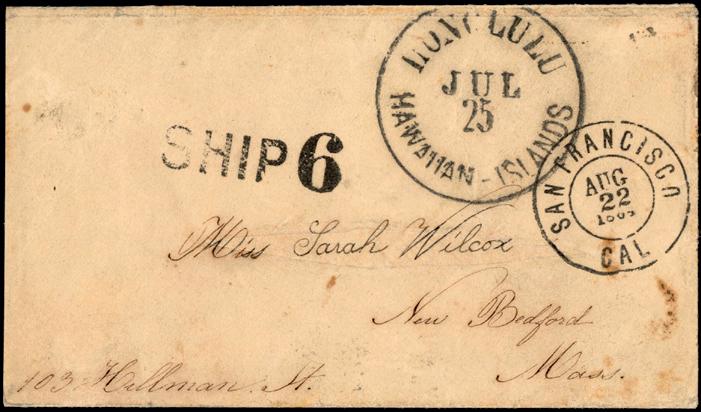 HONOLULU
JUL
25
HAWAIIAN-ISLANDS
SHIP 6
SAN FRANCISCO
AUG
22
CAL
Miss Sarah Wilcox
New Bedford
Mass.
103 Hillman St.